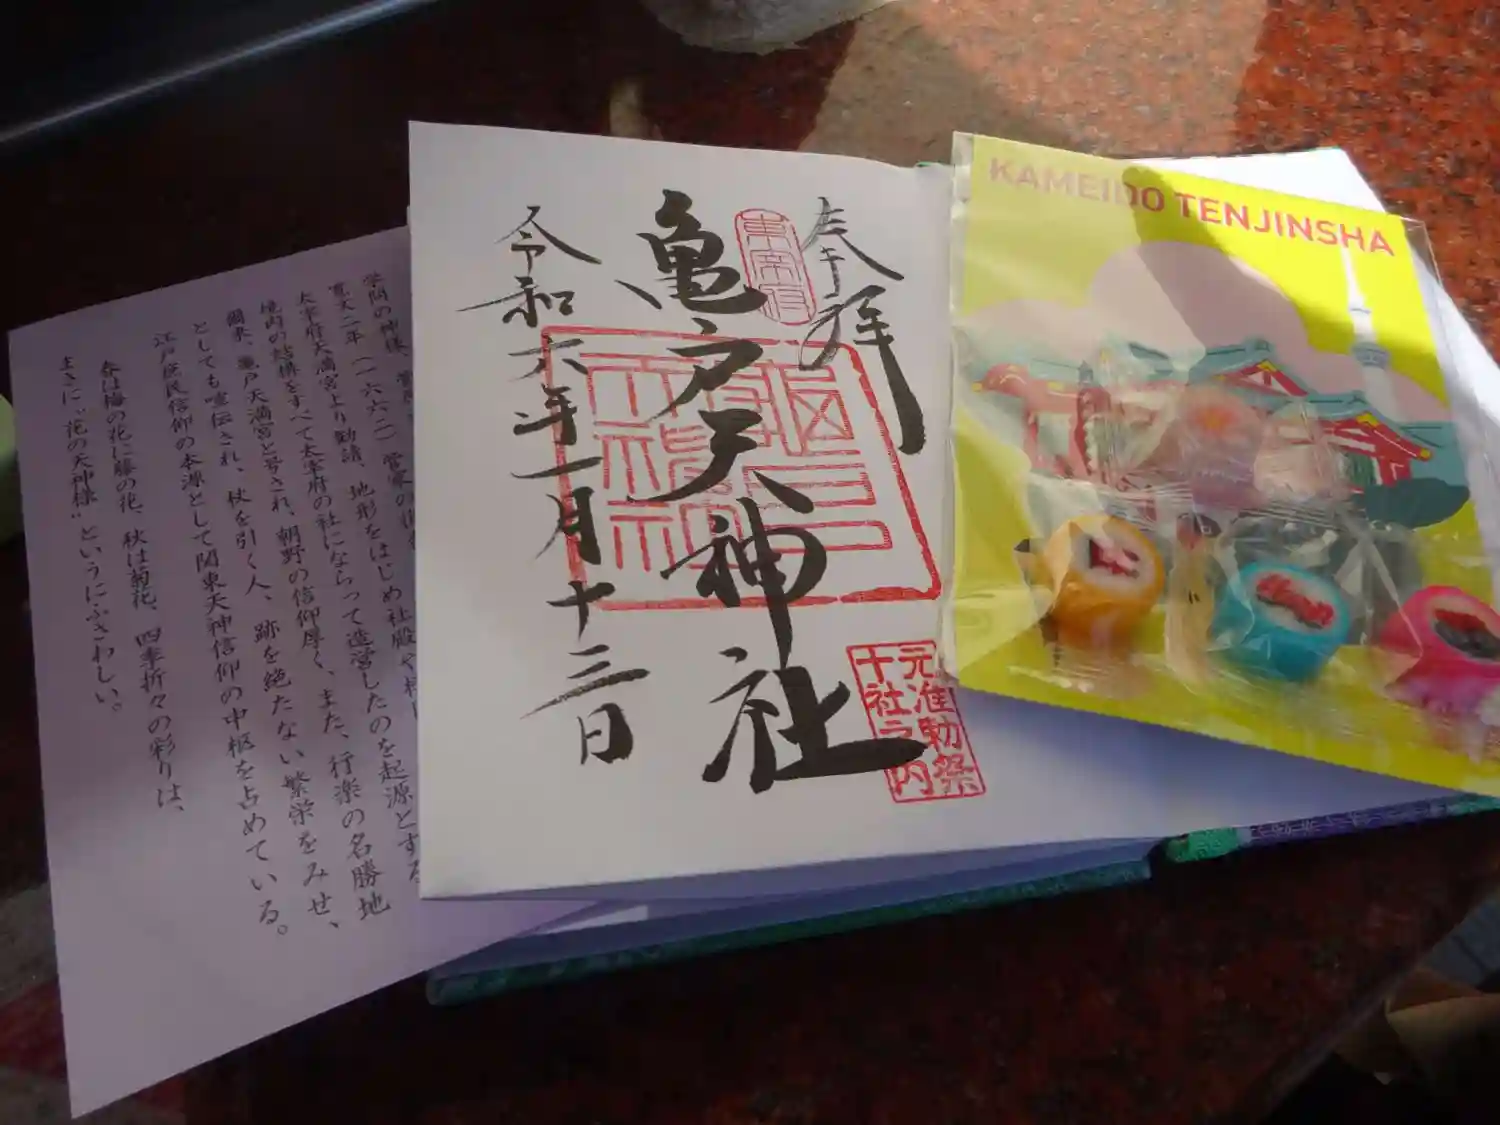 奉拝
亀戸天神社
令和六年一月十三日
東宰府
元准勅祭
十社之内
KAMEIDO TENJINSHA
学問の神様、
寛文二年（一六六二）菅家の
太宰府天満宮より勧請、地形をはじめ社殿や
境内の結構をすべて太宰府の社にならって造営したのを起源とする
爾来、亀戸天満宮と号され、朝野の信仰厚く、また、行楽の名勝地
としても喧伝され、杖を引く人、跡を絶たない繁栄をみせ、
江戸庶民信仰の本源として関東天神信仰の中枢を占めている。
春は梅の花に藤の花、秋は菊花、四季折々の彩りは、
まさに〝花の天神様〟というにふさわしい。